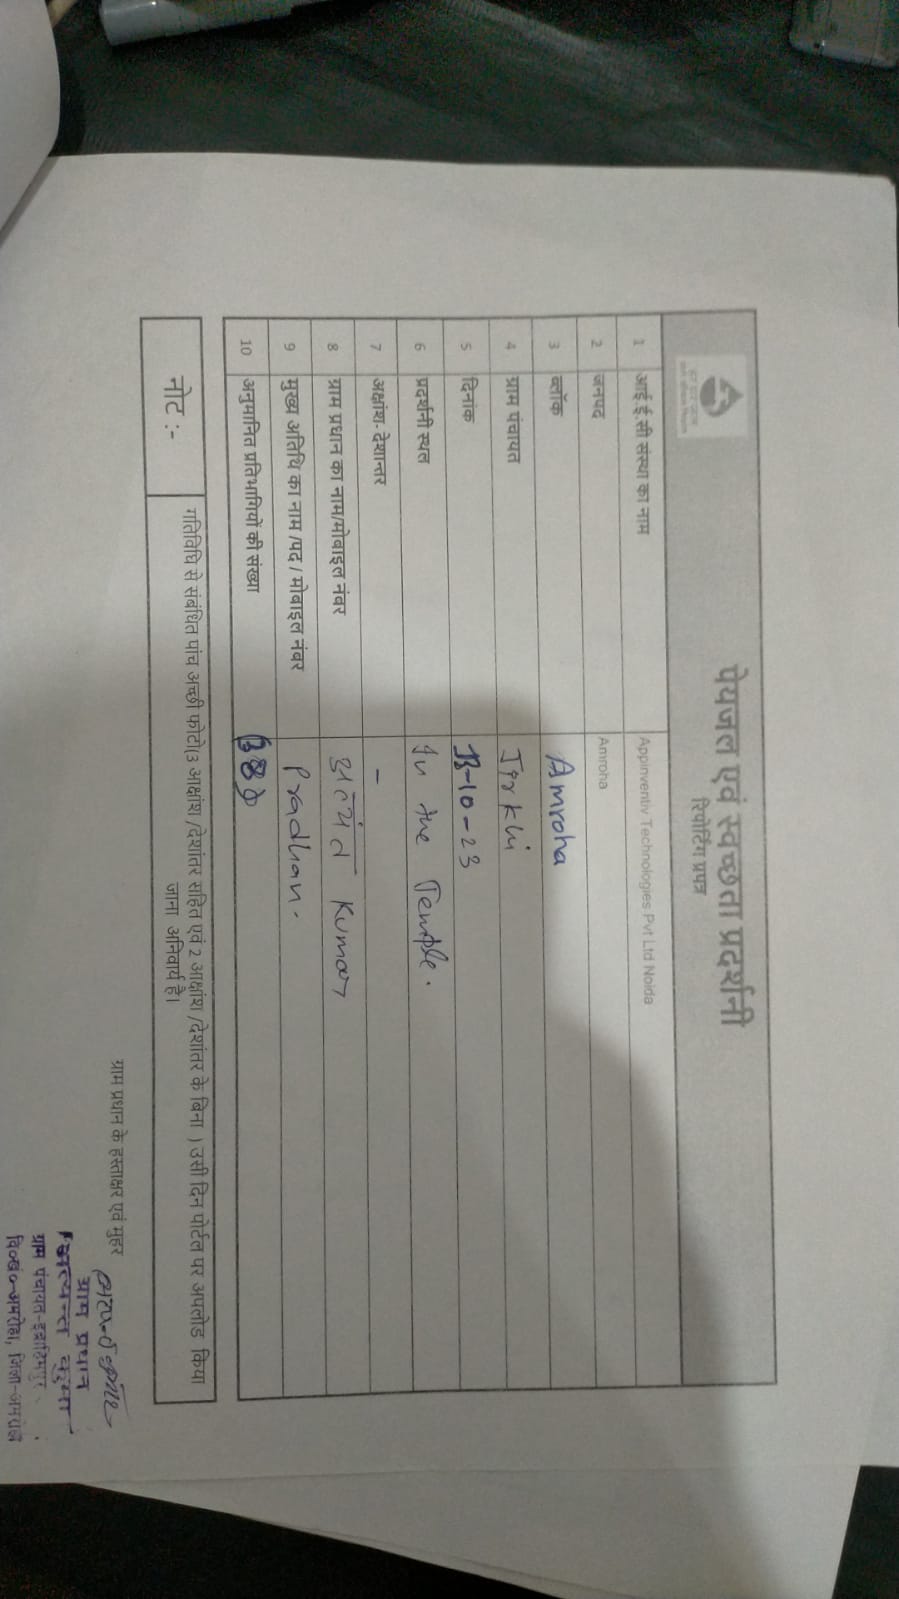 पेयजल एवं स्वच्छता प्रदर्शनी
रिपोर्टिंग प्रपत्र
1 आई.ई.सी संस्था का नाम Appinventiv Technologies Pvt Ltd Noida
2 जनपद Amroha
3 ब्लॉक Amroha
4 ग्राम पंचायत
5 दिनांक 13-10-23
6 प्रदर्शनी स्थल In the Temple.
7 अक्षांश- देशान्तर -
8 ग्राम प्रधान का नाम/मोबाइल नंबर Kumar
9 मुख्य अतिथि का नाम /पद / मोबाइल नंबर Pradhan.
10 अनुमानित प्रतिभागियों की संख्या
नोट :- गतिविधि से संबंधित पांच अच्छी फोटो(3 आक्षांश /देशांतर सहित एवं 2 आक्षांश /देशांतर के बिना ) उसी दिन पोर्टल पर अपलोड किया
जाना अनिवार्य है।
ग्राम प्रधान के हस्ताक्षर एवं मुहर
ग्राम प्रधान
ग्राम पंचायत-
वि०ख०-अमरोहा, जिला-अमरोहा